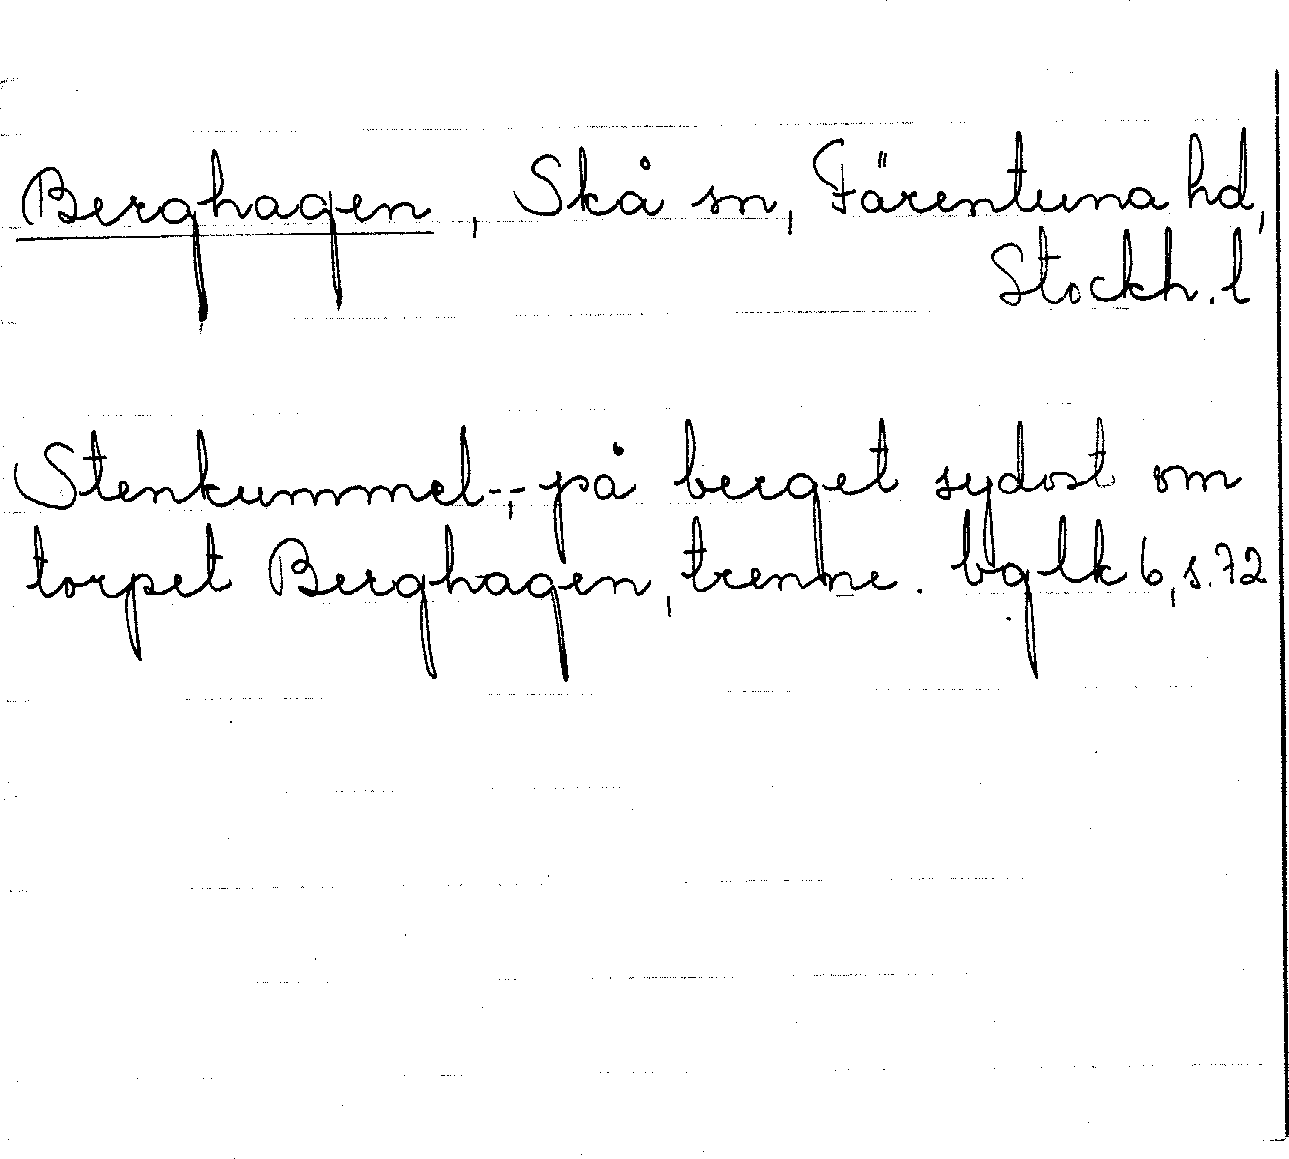 Berghagen, Skå sn, Färentuna hd,
Stockh. l
Stenkummel--, på berget sydost om
torpet Berghagen, trenne. bglk 6, s. 72